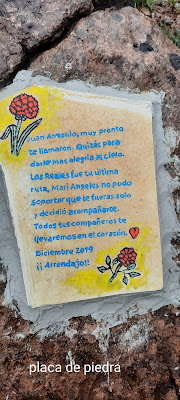 Juan Antonio, muy pronto
te llamaron. Quizás para
darle mas alegria al cielo.
Los Reales fue tu última
ruta, Mari Angeles no pudo
soportar que te fueras solo
y decidió acompañarte.
Todos tus compañeros te
llevaremos en el corazón.
Diciembre 2019
¡¡ Arrendajo!!
placa de piedra